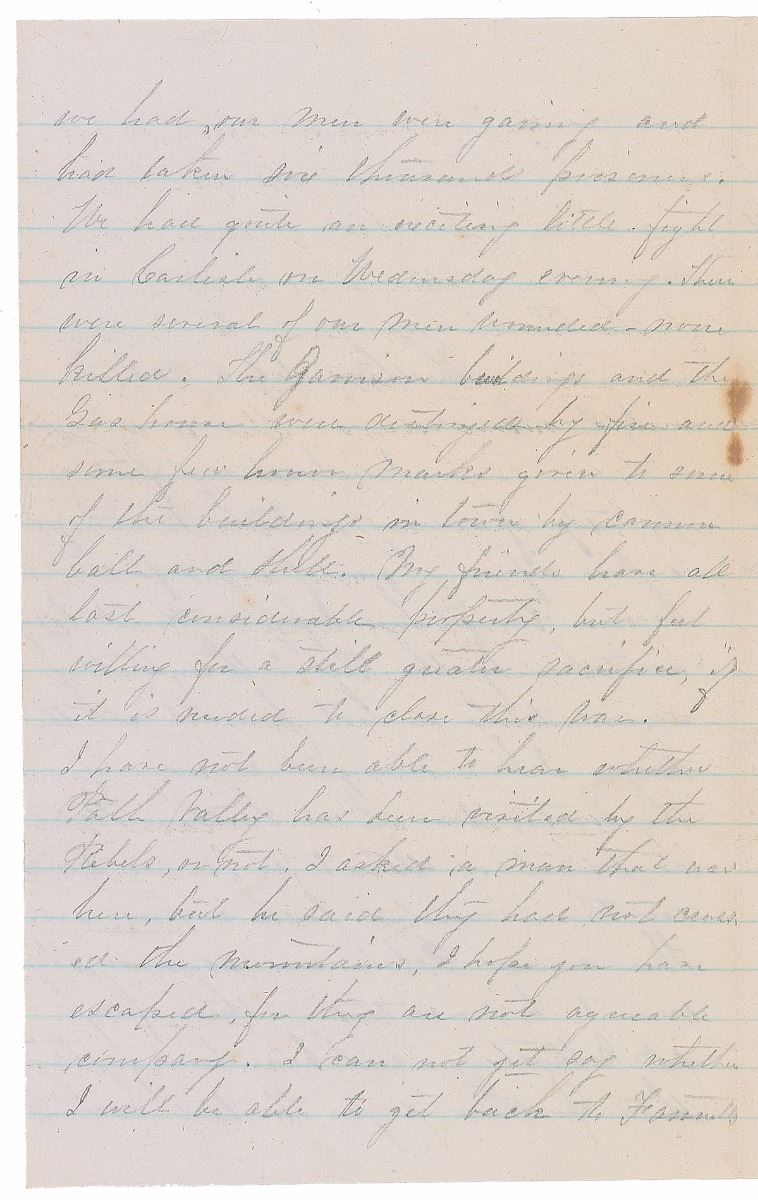 we had, our men were gaining and
had taken six thousand prisoners.
We had quite an exciting little fight
in Carlisle on Wednesday evening. There
were several of our men wounded - none
killed. The Garrison buildings and the
Gas house were destroyed by fire and
some few honor marks given to some
of the buildings in town by cannon
ball and shell. My friends have all
lost considerable property, but feel
willing for a still greater sacrifice, if
it is needed to close this war.
I have not been able to hear whether
Path Valley has been visited by the
Rebels, or not. I asked a man that was
here, but he said they had not cross
ed the mountains, I hope you have
escaped, for they are not agreeable
company. I can not yet say whether
I will be able to get back to Fannetts